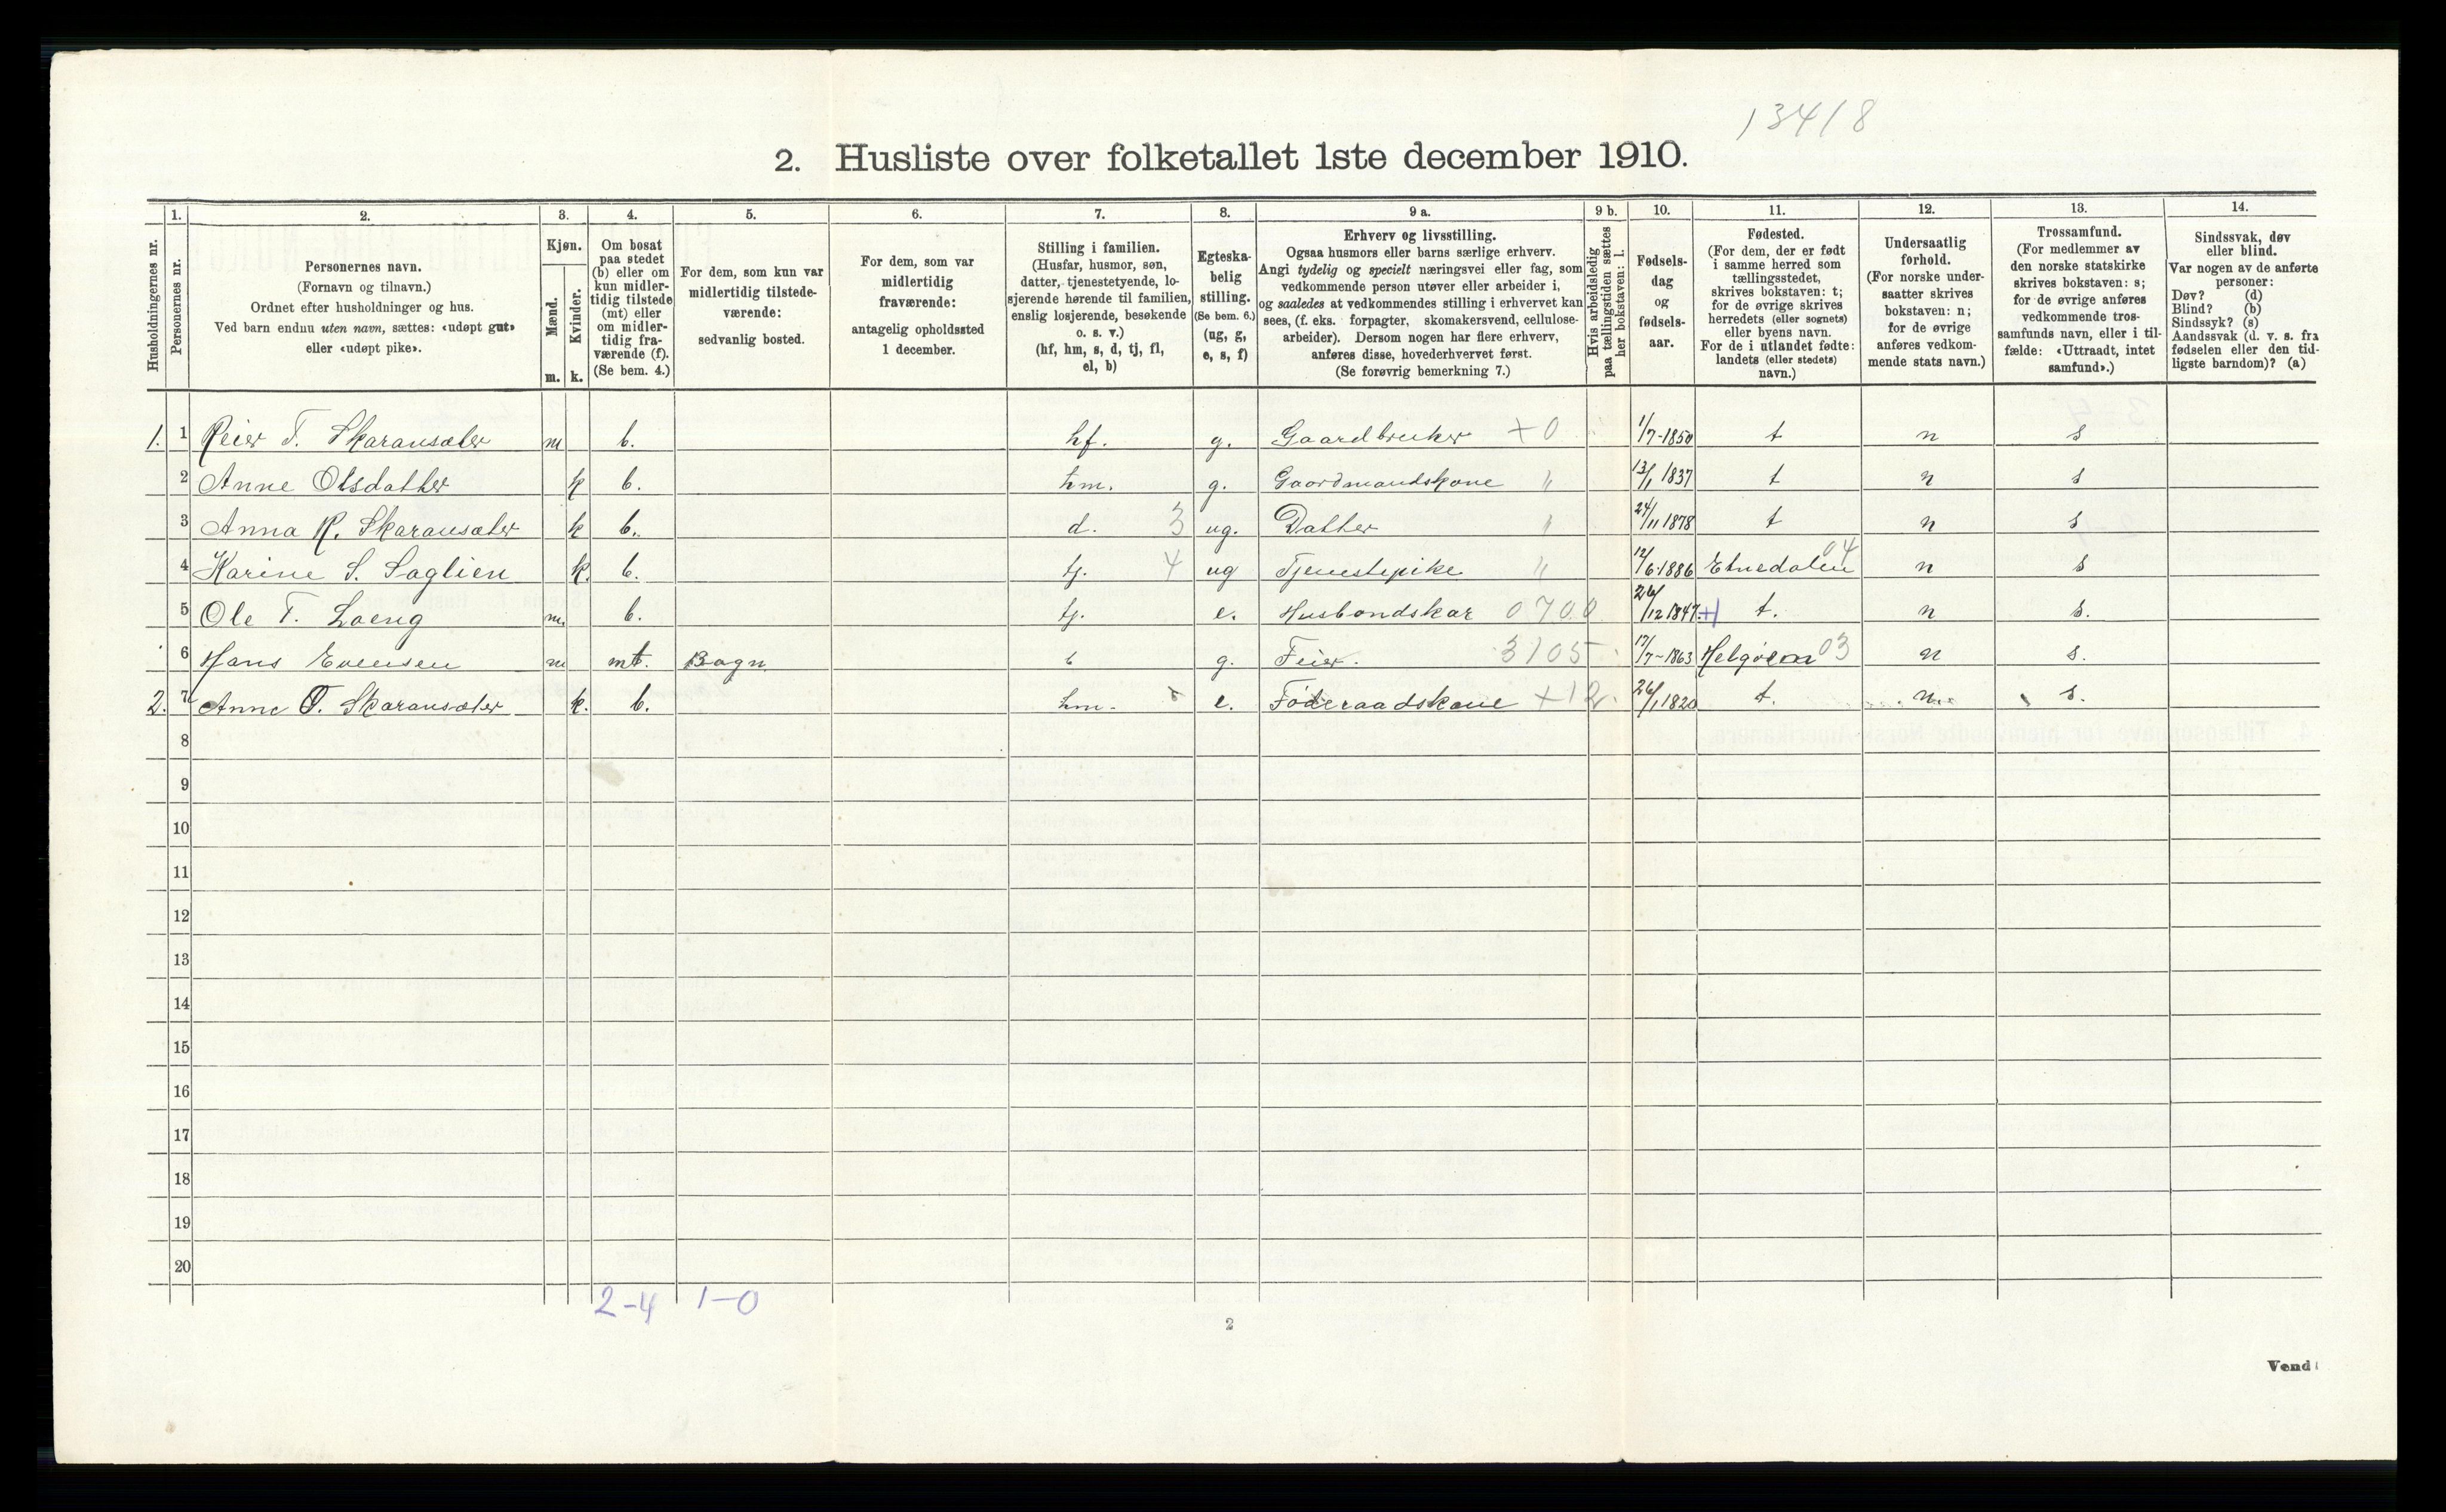 13418
2. Husliste over folketallet 1ste december 1910.
Husholdningernes nr.
1.
Personernes nr.
2.
Personernes navn.
(Fornavn og tilnavn.)
Ordnet efter husholdninger og hus.
Ved barn endnu uten navn, sættes: «udøpt gut»
eller «udøpt pike».
3.
Kjøn.
Mænd.
Kvinder.
m. k.
4.
Om bosat
paa stedet
(b) eller om
kun midler-
tidig tilstede
(mt) eller
om midler-
tidig fra-
værende (f).
(Se bem. 4.)
5.
For dem, som kun var
midlertidig tilstede-
værende:
sedvanlig bosted.
6.
For dem, som var
midlertidig
fraværende:
antagelig opholdssted
1 december.
7.
Stilling i familien.
(Husfar, husmor, søn,
datter, tjenestetyende, lo-
sjerende hørende til familien,
enslig losjerende, besøkende
o. s. v.)
(hf, hm, s, d, tj, fl,
el, b)
8.
Egteska-
belig
stilling.
(Se bem. 6.)
(ug, g,
e, s, f)
9 a.
Erhverv og livsstilling.
Ogsaa husmors eller barns særlige erhverv.
Angi tydelig og specielt næringsvei eller fag, som
vedkommende person utøver eller arbeider i,
og saaledes at vedkommendes stilling i erhvervet kan
sees, (f. eks. forpagter, skomakersvend, cellulose-
arbeider). Dersom nogen har flere erhverv,
anføres disse, hovederhvervet først.
(Se forøvrig bemerkning 7.)
9 b.
Hvis arbeidsledig
paa tællingstiden sættes
her bokstaven: l.
10.
Fødsels-
dag
og
fødsels-
aar.
11.
Fødested.
(For dem, der er født
i samme herred som
tællingsstedet,
skrives bokstaven: t;
for de øvrige skrives
herredets (eller sognets)
eller byens navn.
For de i utlandet fødte:
landets (eller stedets)
navn.)
12.
Undersaatlig
forhold.
(For norske under-
saatter skrives
bokstaven: n;
for de øvrige
anføres vedkom-
mende stats navn.)
13.
Trossamfund.
(For medlemmer av
den norske statskirke
skrives bokstaven: s;
for de øvrige anføres
vedkommende tros-
samfunds navn, eller i til-
fælde: «Uttraadt, intet
samfund».)
14.
Sindssvak, døv
eller blind.
Var nogen av de anførte
personer:
Døv? (d)
Blind? (b)
Sindssyk? (s)
Aandssvak (d. v. s. fra
fødselen eller den tid-
ligste barndom)? (a)
1. 1 Reier T. Skaransæter m b. hf. g. Gaardbruker +0 1/7-1850 t n s
2 Anne Olsdatter k b. hm. g. Gaardmandskone " 13/1 1837 t n s
3 Anna R. Skaransæter k b. d. 3 ug. Datter " 24/11 1878 t n s
4 Karine S. Saglien k. b. tj. 4 ug Tjenestepike " 12/6.1886 Etnedalen 04 n s
5 Ole T. Loeng m. b. tj. e. Husbondskar 0700 26/12 1847. t. n s.
6 Hans Evensen m mt. Bagn b g. Feier. 3105 17/7-1863 Helgøen 03 n s.
2. 7 Anne T. Skaransæter k. b. hm. e. Føderaadskone +12 26/1 1820 t. n. s.
8
9
10
11
12
13
14
15
16
17
18
19
20
2-4 1-0
2
Vend!